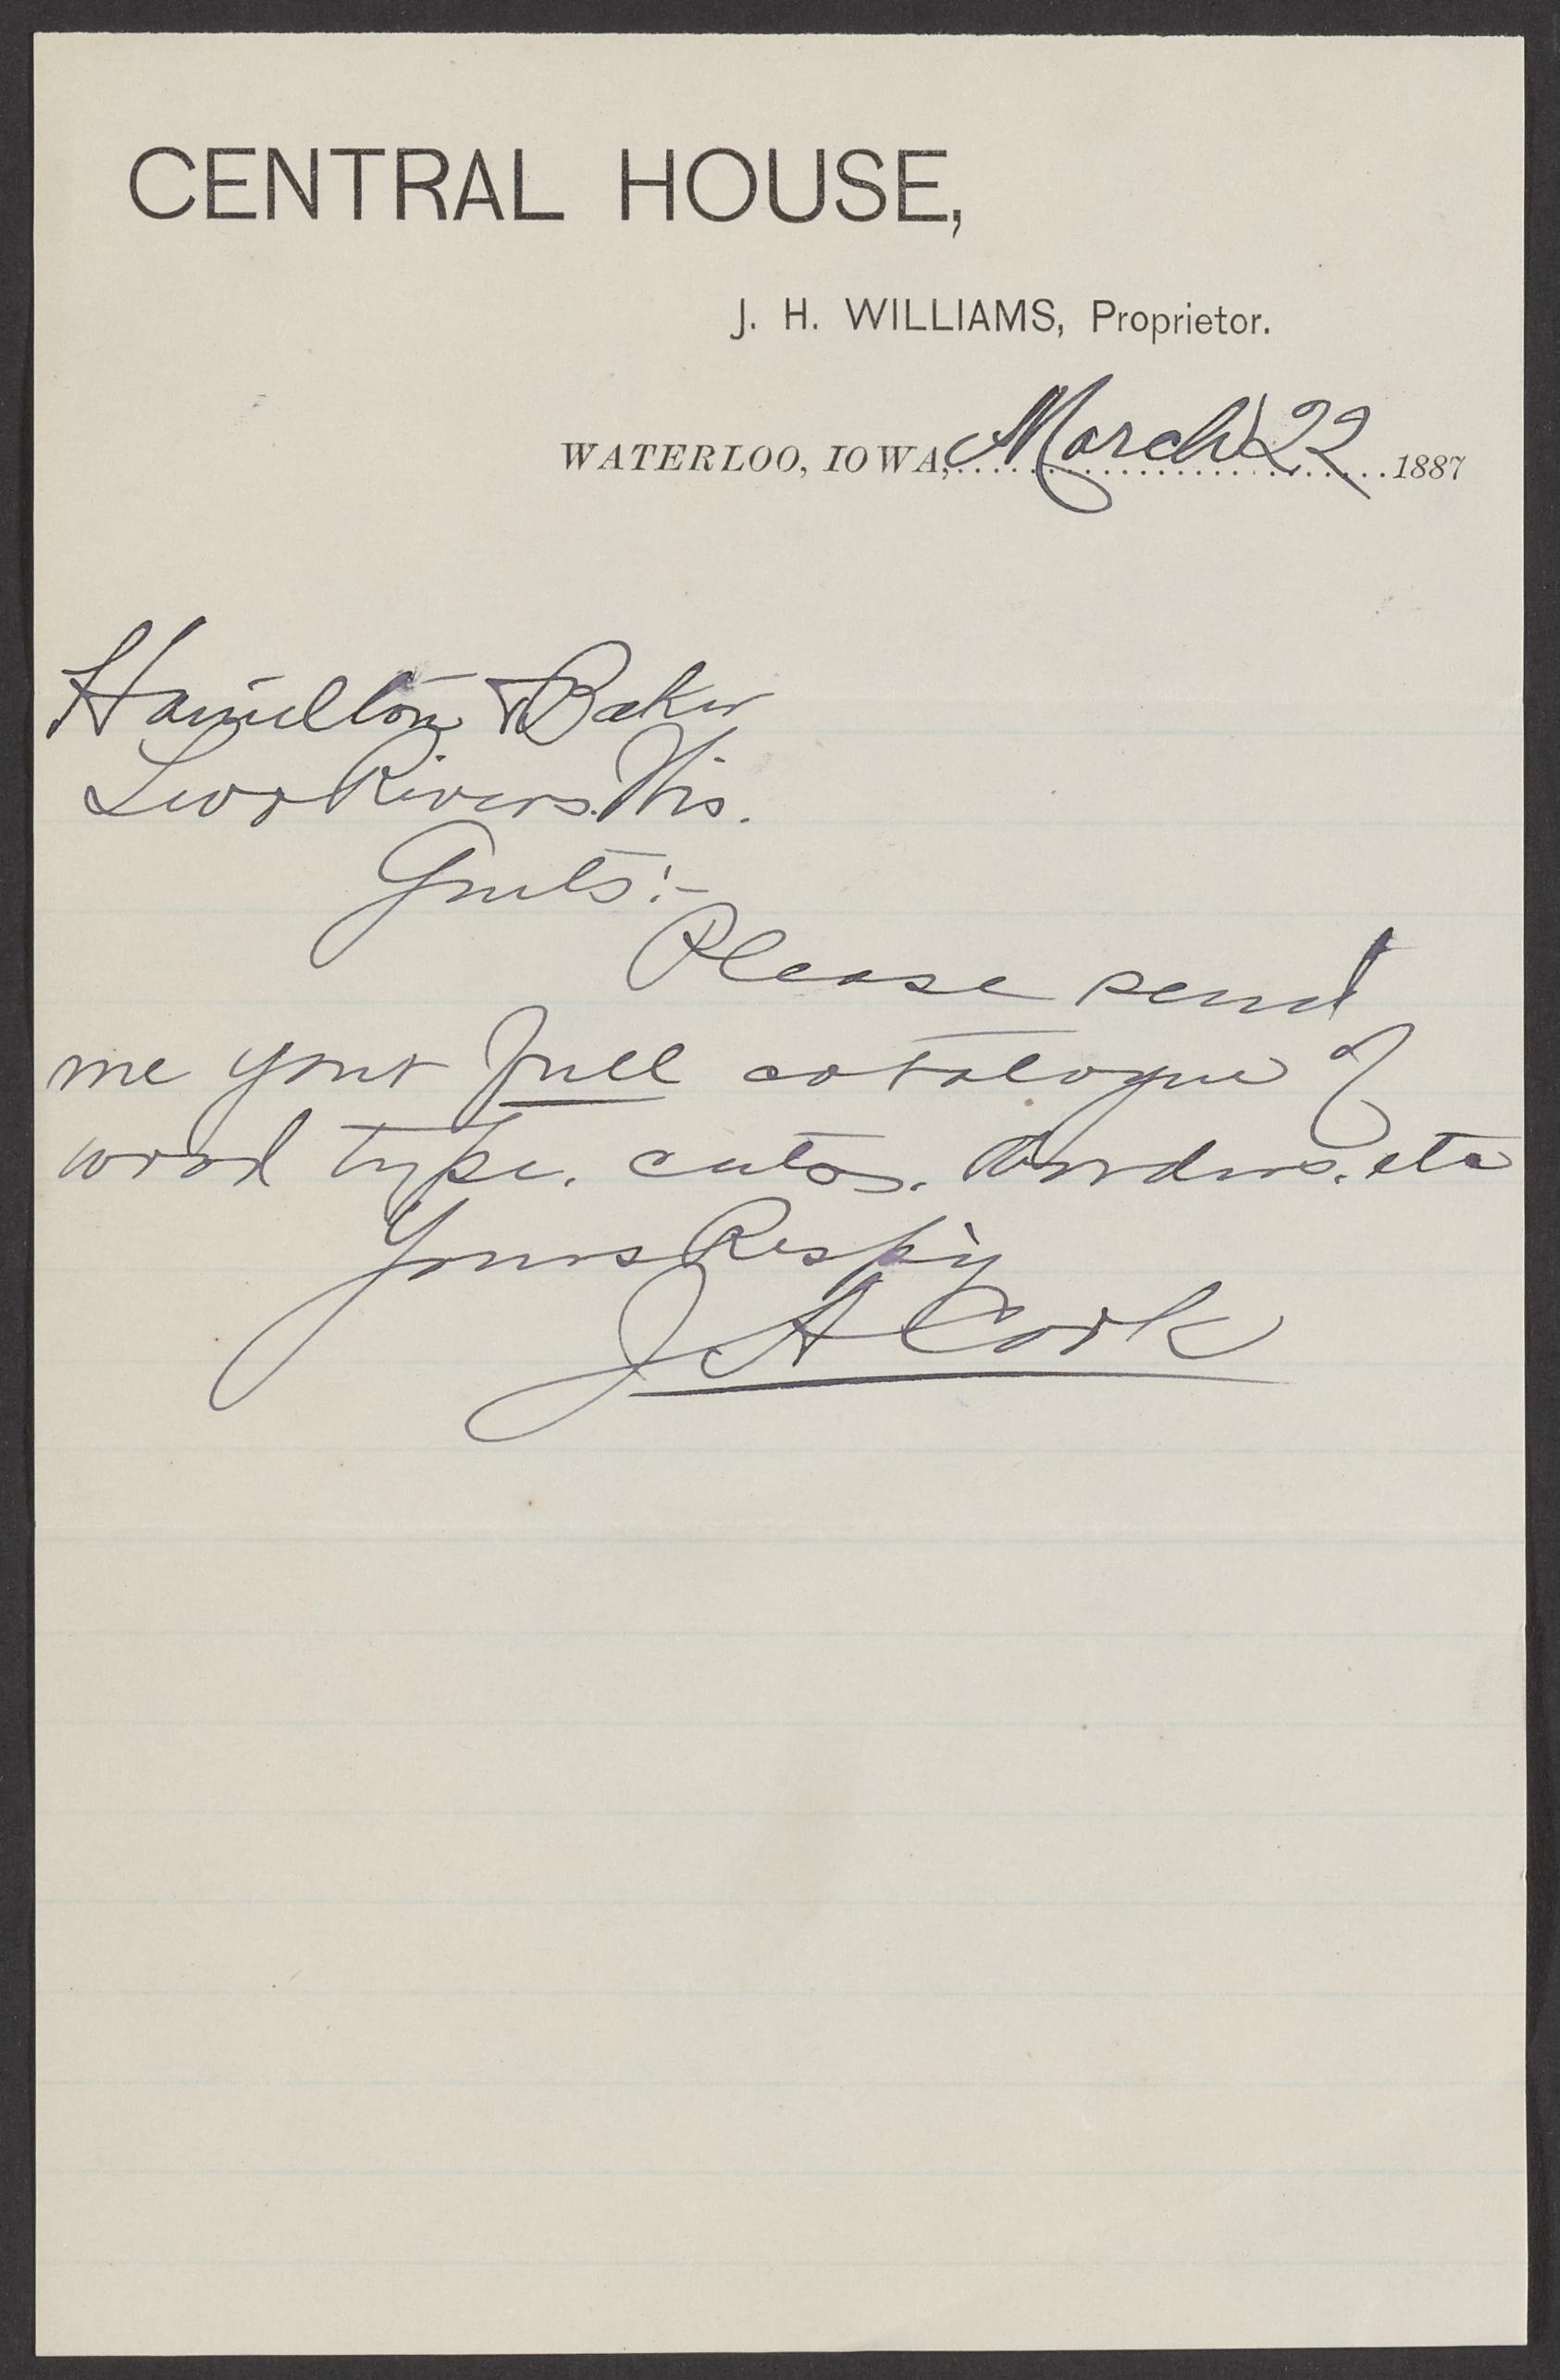 CENTRAL HOUSE,
J. H. WILLIAMS, Proprietor.
WATERLOO, IOWA, March 22 1887
Hamilton & Baker
Two Rivers. Wis.
Gents:-
Please send
me your full catalogue of
wood type, cuts, borders, etc
Yours Resp'y
J A Cook